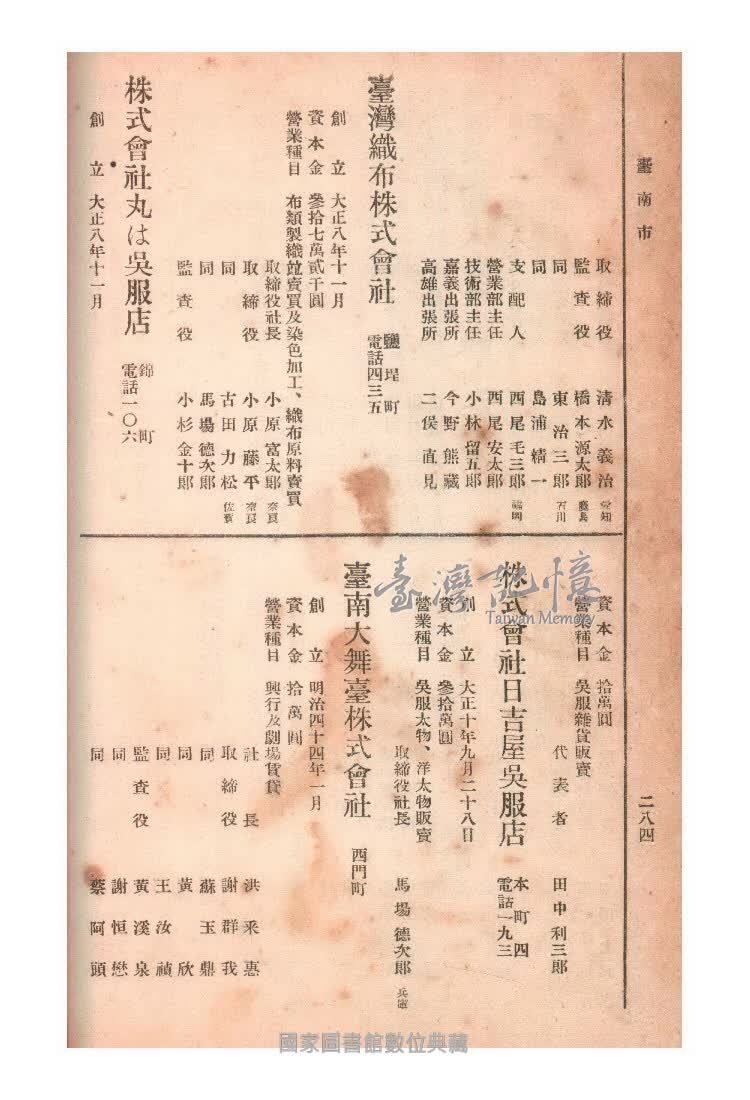 臺南市
二八四
取締役 清水義治 愛知
監査役 橋本源太郎
同 東治三郎 石川
同 島浦精一
支配人 西尾毛三郎 福岡
營業部主任 西尾安太郎
技術部主任 小林留五郎
嘉義出張所 今野熊藏
高雄出張所 二俣直見
臺灣織布株式會社
鹽埕町
電話四三五
創立 大正八年十一月
資本金 參拾七萬貳千圓
營業種目 布類製織竝賣買及染色加工、織布原料賣買
取締役社長 小原富太郎 奈良
取締役 小原藤平 奈良
同 古田力松 佐賀
同 馬場德次郎
監査役 小杉金十郎
株式會社丸は吳服店
錦町
電話一〇六
創立 大正八年十一月
資本金 拾萬圓
營業種目 吳服雜貨販賣
代表者 田中利三郎
株式會社日吉屋吳服店
本町四
電話一九三
創立 大正十年九月二十八日
資本金 參拾萬圓
營業種目 吳服太物、洋太物販賣
取締役社長 馬場德次郎 兵庫
臺南大舞臺株式會社
西門町
創立 明治四十四年一月
資本金 拾萬圓
營業種目 興行及劇場賃貸
社長 洪采惠
取締役 謝群我
同 蘇玉鼎
同 黃欣
同 王汝禎
監査役 黃溪泉
同 謝恒懋
同 蔡阿頭
臺灣記憶
Taiwan Memory
國家圖書館數位典藏